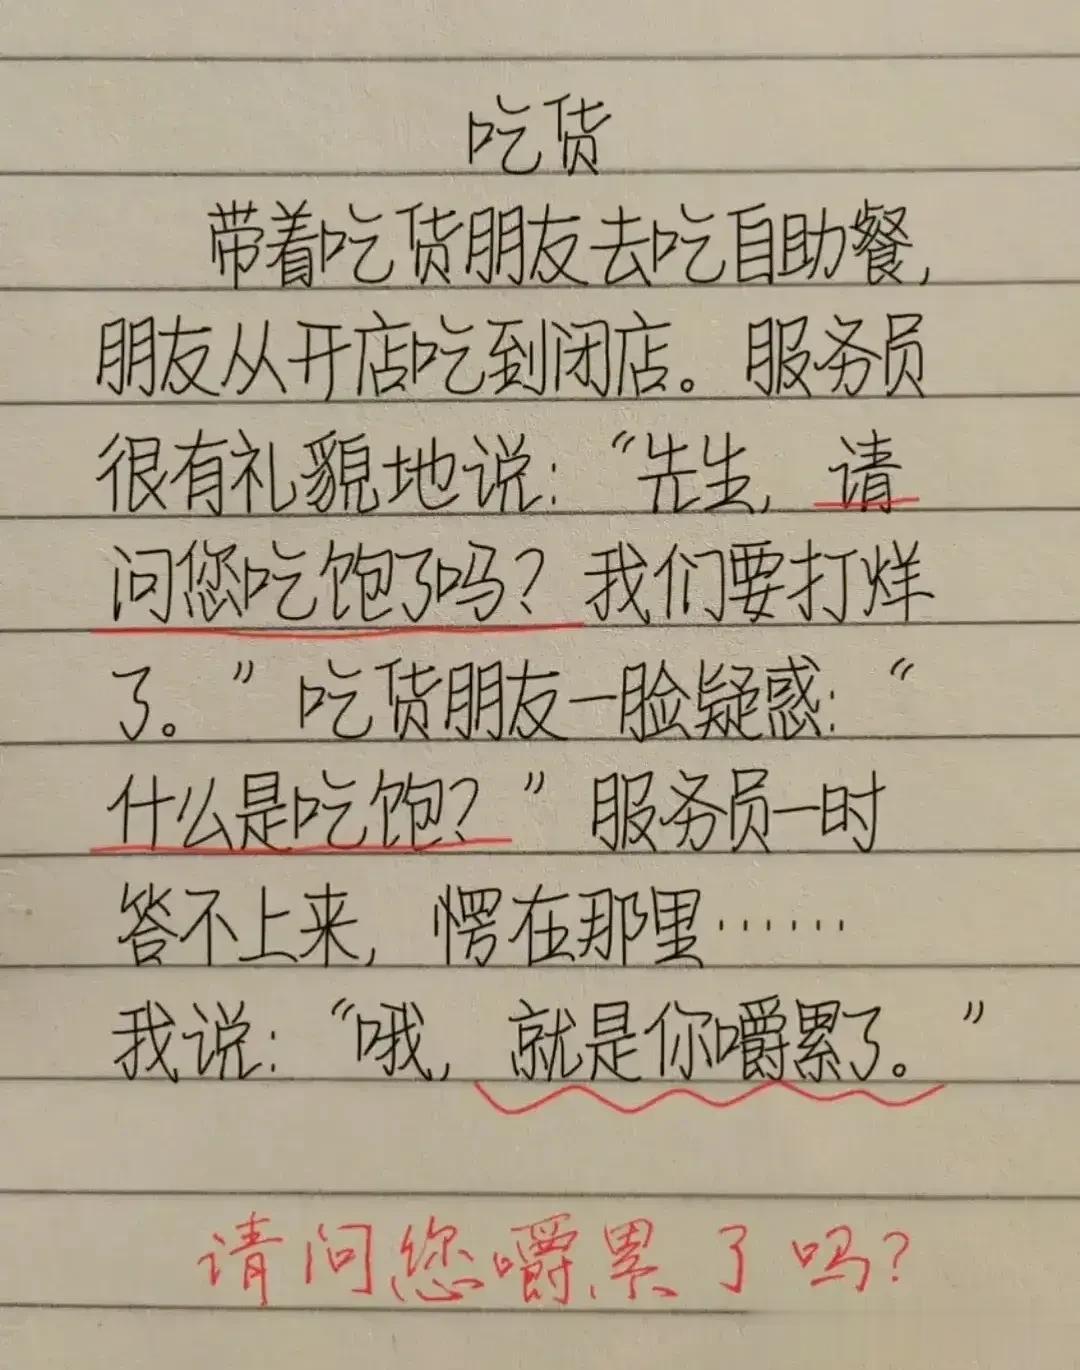 吃货
带着吃货朋友去吃自助餐,
朋友从开店吃到闭店。服务员
很有礼貌地说:“先生,请
问您吃饱了吗?我们要打烊
了。”吃货朋友一脸疑惑:“
什么是吃饱?”服务员一时
答不上来,愣在那里……
我说:“哦,就是你嚼累了。”
请问您嚼累了吗?